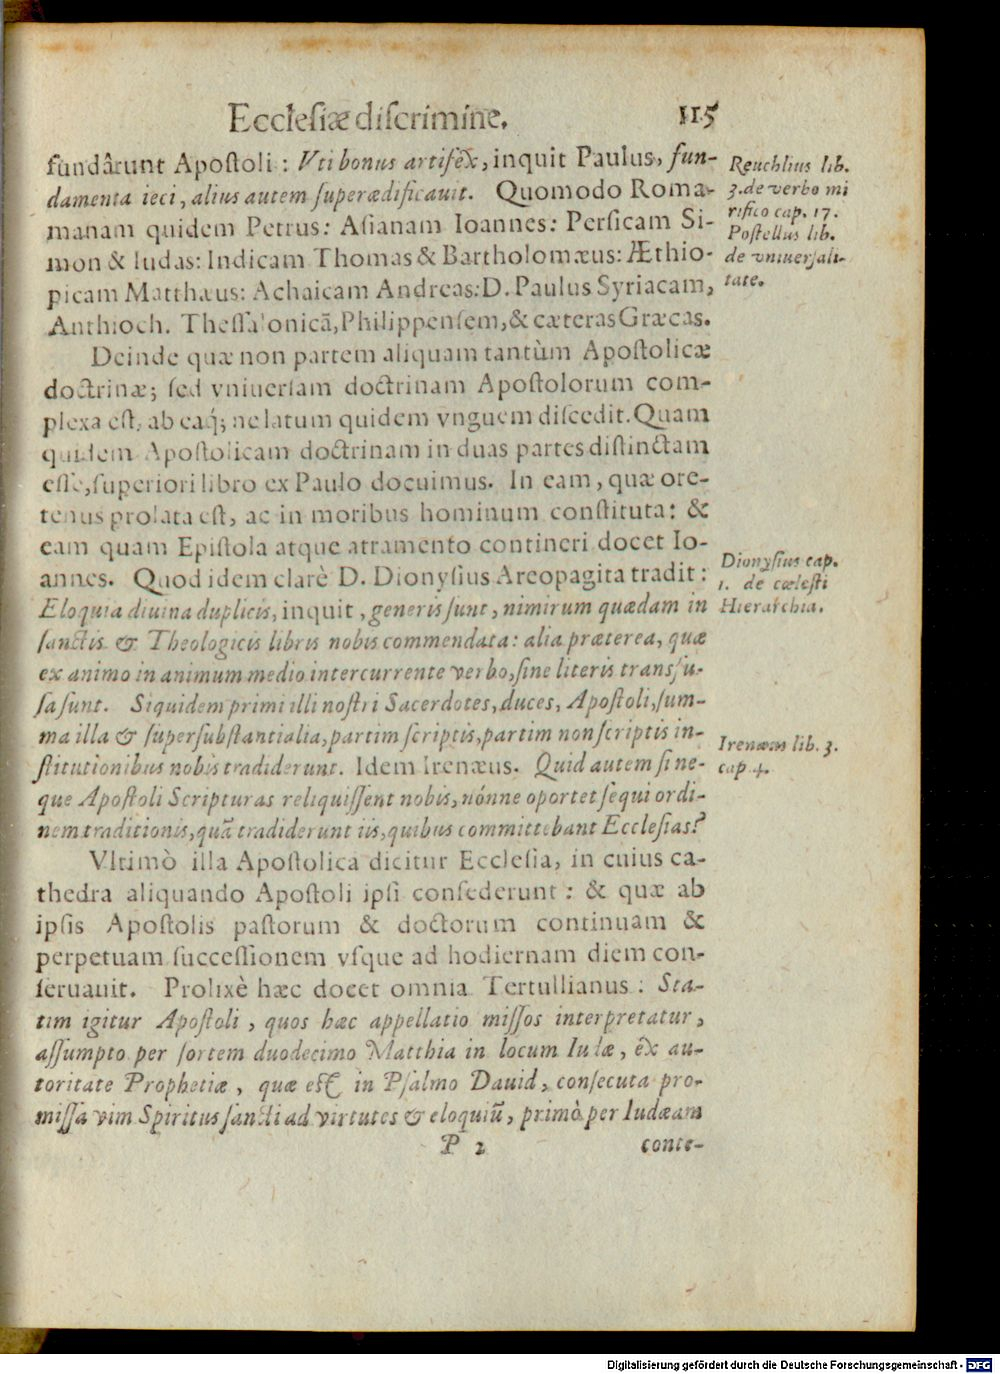 Ecclesiæ discrimine. 115
fundârunt Apostoli : Vti bonus artifex, inquit Paulus, fun-
damenta ieci, alius autem superædificauit. Quomodo Roma-
manam quidem Petrus: Asianam Ioannes: Persicam Si-
mon & Iudas: Indicam Thomas & Bartholomæus: Æthio-
picam Matthæus: Achaicam Andreas: D. Paulus Syriacam,
Anthioch. Thessalonicā, Philippensem, & cæteras Græcas.
Reuchlius lib.
3. de verbo mi
rifico cap. 17.
Postellus lib.
de vniuersali-
tate.
Deinde quæ non partem aliquam tantùm Apostolicæ
doctrinæ; sed vniuersam doctrinam Apostolorum com-
plexa est, ab eaq́; ne latum quidem vnguem discedit. Quam
quidem Apostolicam doctrinam in duas partes distinctam
esse, superiori libro ex Paulo docuimus. In eam, quæ ore-
tenus prolata est, ac in moribus hominum constituta: &
eam quam Epistola atque atramento contineri docet Io-
annes. Quod idem clarè D. Dionysius Areopagita tradit:
Eloquia diuina duplicis, inquit, generis sunt, nimirum quædam in
sanctis & Theologicis libris nobis commendata: alia præterea, quæ
ex animo in animum medio intercurrente verbo, sine literis transfu-
sa sunt. Siquidem primi illi nostri Sacerdotes, duces, Apostoli, sum-
ma illa & supersubstantialia, partim scriptis, partim non scriptis in-
stitutionibus nobis tradiderunt. Idem Irenæus. Quid autem si ne-
que Apostoli Scripturas reliquissent nobis, nónne oportet sequi ordi-
nem traditionis, quā tradiderunt iis, quibus committebant Ecclesias?
Dionysius cap.
1. de cœlesti
Hierarchia.
Irenæus lib. 3.
cap 4.
Vltimò illa Apostolica dicitur Ecclesia, in cuius ca-
thedra aliquando Apostoli ipsi consederunt : & quæ ab
ipsis Apostolis pastorum & doctorum continuam &
perpetuam successionem vsque ad hodiernam diem con-
seruauit. Prolixè hæc docet omnia Tertullianus : Sta-
tim igitur Apostoli, quos hæc appellatio missos interpretatur,
assumpto per sortem duodecimo Matthia in locum Iudæ, ex au-
toritate Prophetiæ, quæ est in Psalmo Dauid, consecuta pro-
missa vim Spiritus sancti ad virtutes & eloquiū, primò per Iudæam
P 2 conte-
Digitalisierung gefördert durch die Deutsche Forschungsgemeinschaft - DFG